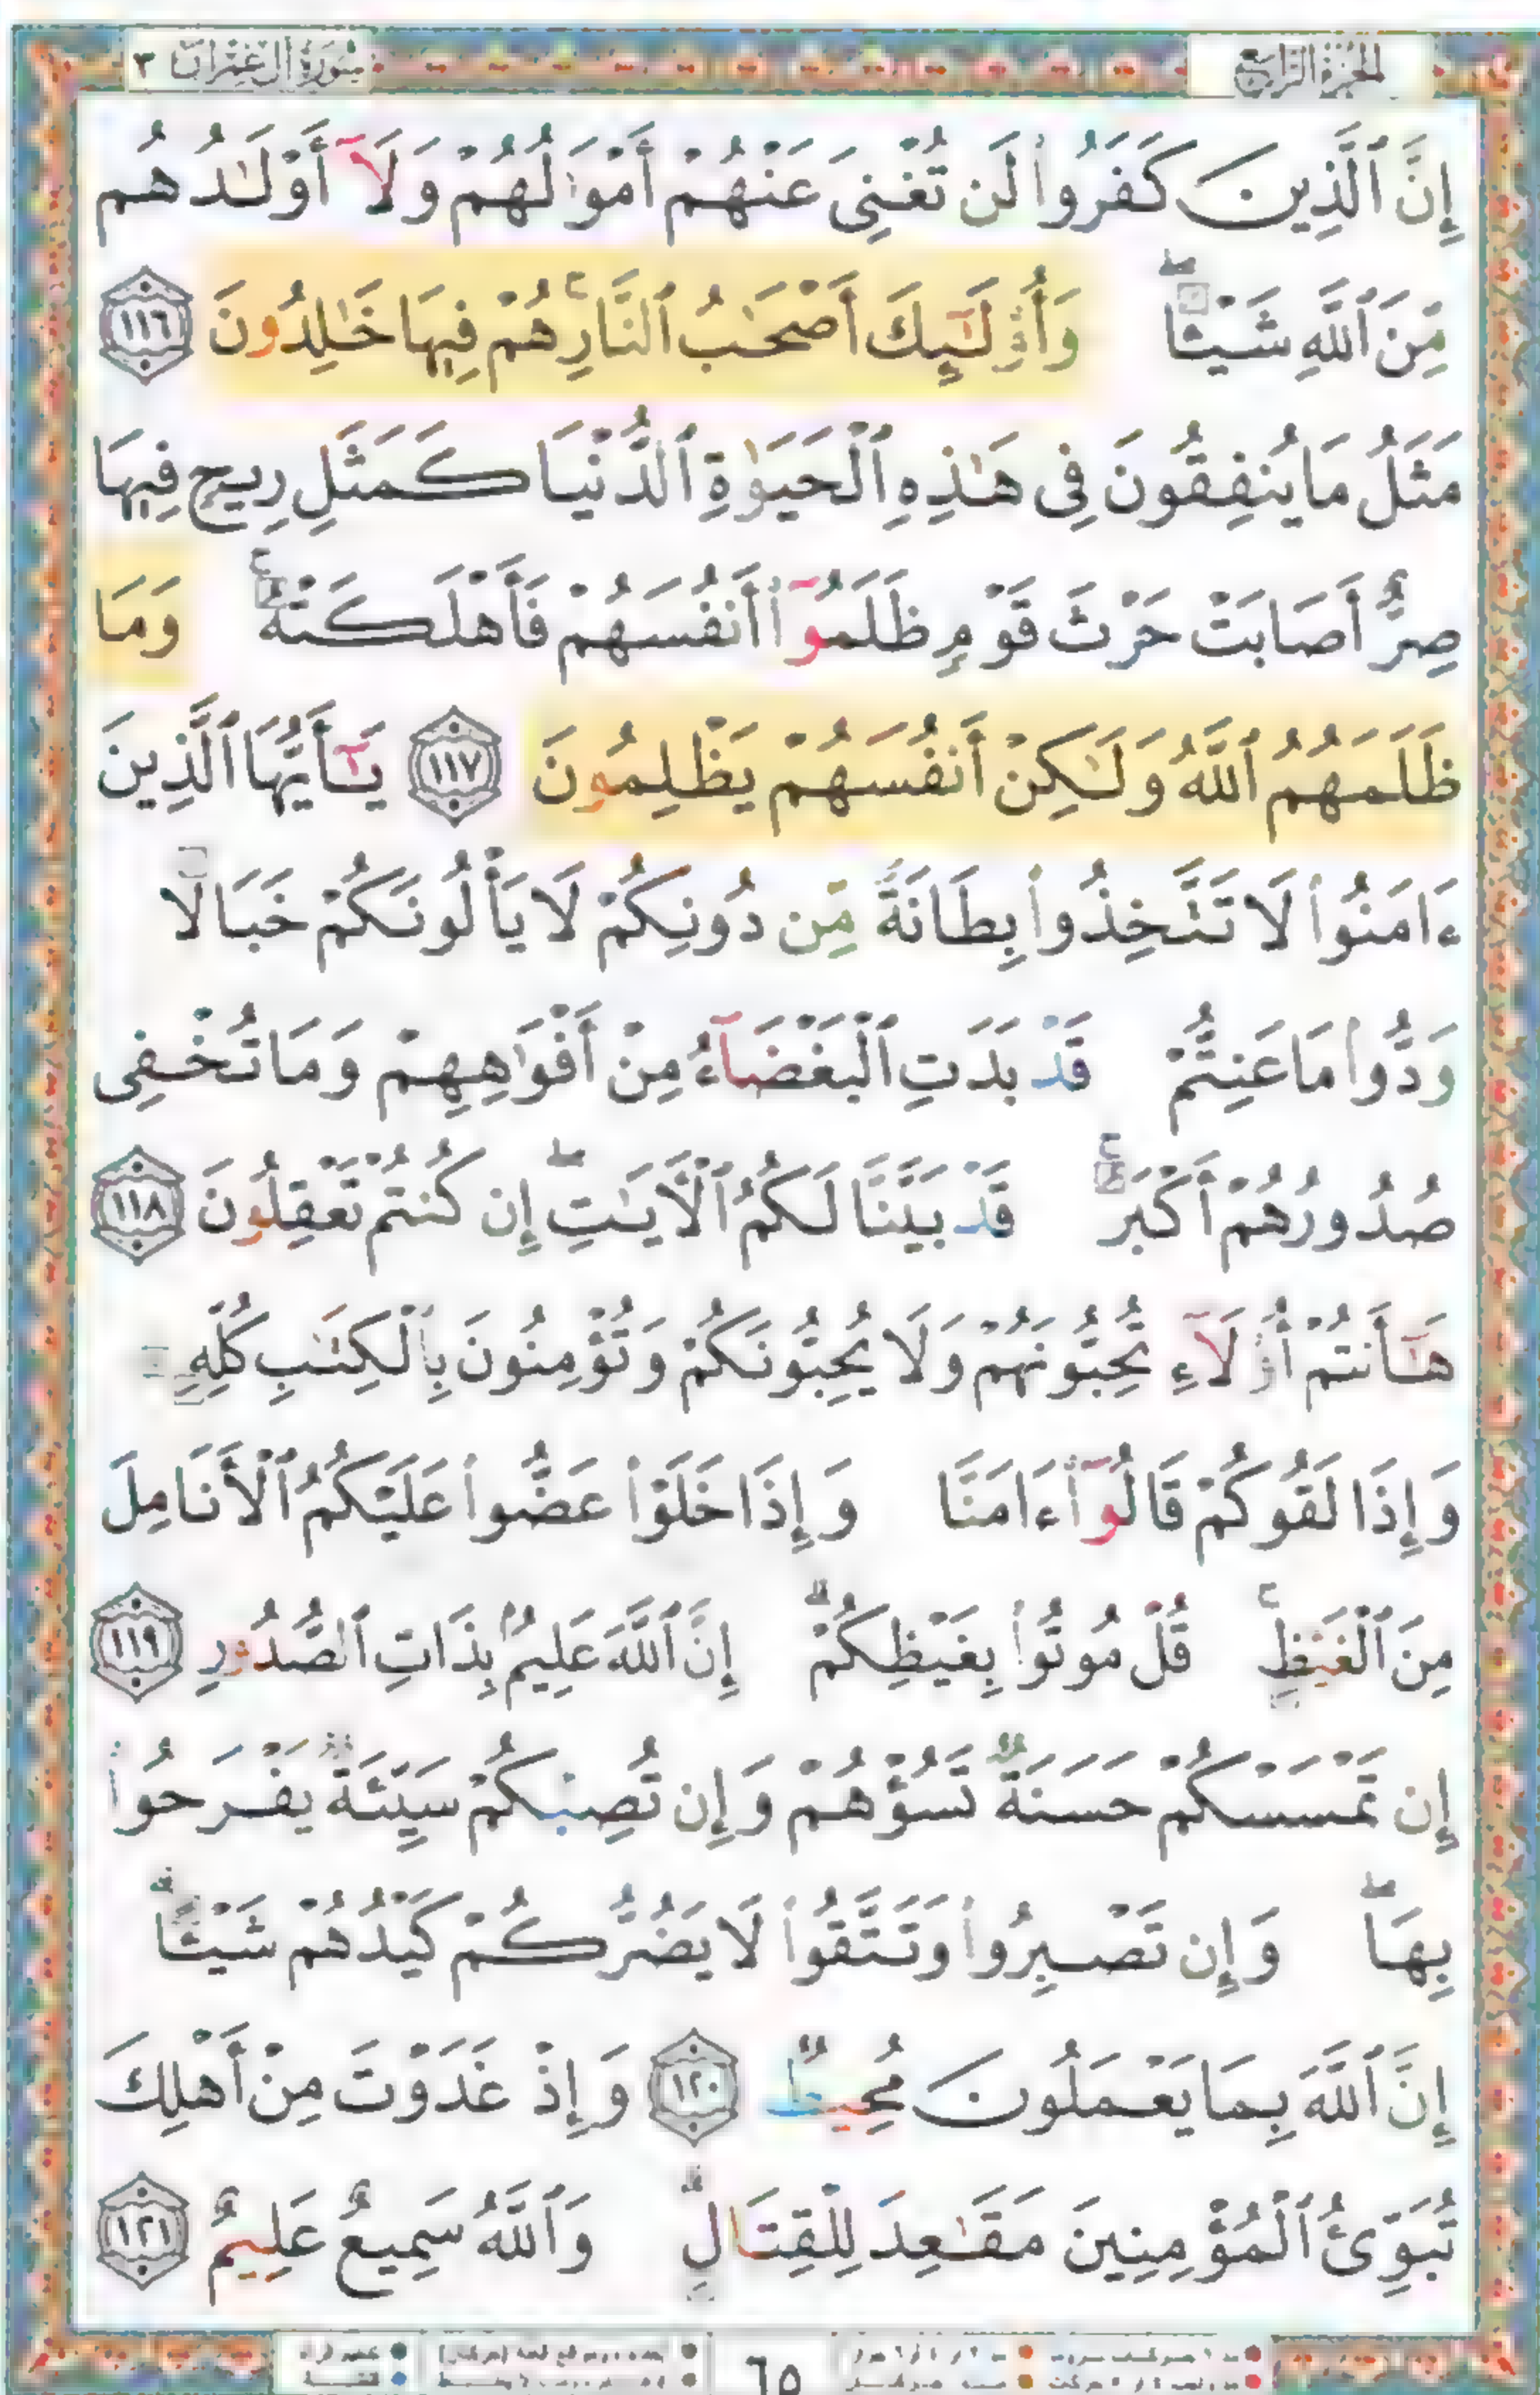 سُورَةُ آلِ عِمْرَانَ ٣
الجُزْءُ الرَّابِعُ
إِنَّ ٱلَّذِينَ كَفَرُوا۟ لَن تُغْنِىَ عَنْهُمْ أَمْوَٰلُهُمْ وَلَآ أَوْلَـٰدُهُم
مِّنَ ٱللَّهِ شَيْـًٔا ۖ وَأُو۟لَـٰٓئِكَ أَصْحَـٰبُ ٱلنَّارِ ۚ هُمْ فِيهَا خَـٰلِدُونَ ١١٦
مَثَلُ مَا يُنفِقُونَ فِى هَـٰذِهِ ٱلْحَيَوٰةِ ٱلدُّنْيَا كَمَثَلِ رِيحٍ فِيهَا
صِرٌّ أَصَابَتْ حَرْثَ قَوْمٍ ظَلَمُوٓا۟ أَنفُسَهُمْ فَأَهْلَكَتْهُ ۚ وَمَا
ظَلَمَهُمُ ٱللَّهُ وَلَـٰكِنْ أَنفُسَهُمْ يَظْلِمُونَ ١١٧ يَـٰٓأَيُّهَا ٱلَّذِينَ
ءَامَنُوا۟ لَا تَتَّخِذُوا۟ بِطَانَةً مِّن دُونِكُمْ لَا يَأْلُونَكُمْ خَبَالًا
وَدُّوا۟ مَا عَنِتُّمْ قَدْ بَدَتِ ٱلْبَغْضَآءُ مِنْ أَفْوَٰهِهِمْ وَمَا تُخْفِى
صُدُورُهُمْ أَكْبَرُ ۚ قَدْ بَيَّنَّا لَكُمُ ٱلْـَٔايَـٰتِ ۖ إِن كُنتُمْ تَعْقِلُونَ ١١٨
هَـٰٓأَنتُمْ أُو۟لَآءِ تُحِبُّونَهُمْ وَلَا يُحِبُّونَكُمْ وَتُؤْمِنُونَ بِٱلْكِتَـٰبِ كُلِّهِۦ
وَإِذَا لَقُوكُمْ قَالُوٓا۟ ءَامَنَّا وَإِذَا خَلَوْا۟ عَضُّوا۟ عَلَيْكُمُ ٱلْأَنَامِلَ
مِنَ ٱلْغَيْظِ ۚ قُلْ مُوتُوا۟ بِغَيْظِكُمْ ۗ إِنَّ ٱللَّهَ عَلِيمٌۢ بِذَاتِ ٱلصُّدُورِ ١١٩
إِن تَمْسَسْكُمْ حَسَنَةٌ تَسُؤْهُمْ وَإِن تُصِبْكُمْ سَيِّئَةٌ يَفْرَحُوا۟
بِهَا ۖ وَإِن تَصْبِرُوا۟ وَتَتَّقُوا۟ لَا يَضُرُّكُمْ كَيْدُهُمْ شَيْـًٔا ۗ
إِنَّ ٱللَّهَ بِمَا يَعْمَلُونَ مُحِيطٌ ١٢٠ وَإِذْ غَدَوْتَ مِنْ أَهْلِكَ
تُبَوِّئُ ٱلْمُؤْمِنِينَ مَقَـٰعِدَ لِلْقِتَالِ ۗ وَٱللَّهُ سَمِيعٌ عَلِيمٌ ١٢١
٦٥